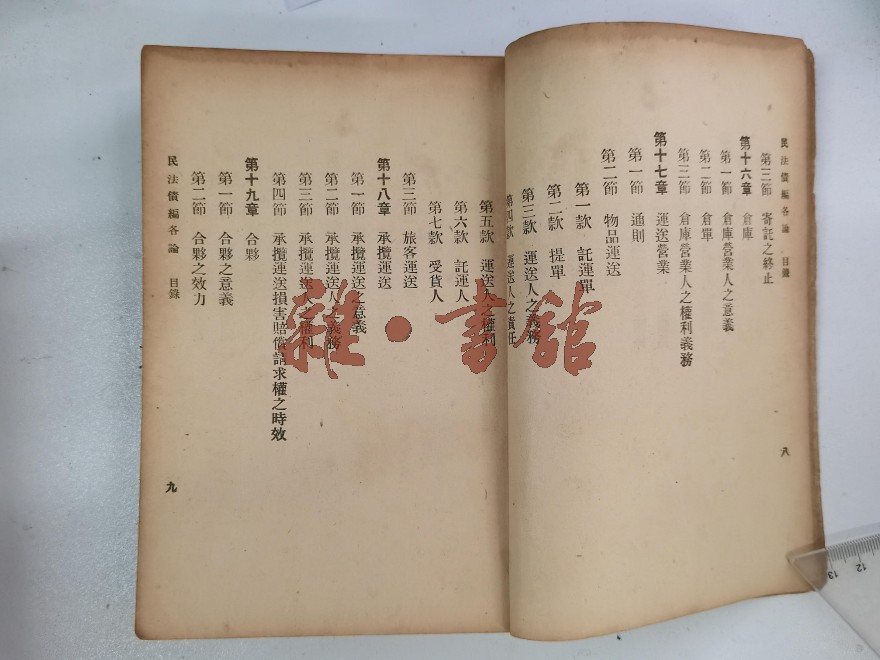 民法債編各論　目錄
第三節　寄託之終止
第十六章　倉庫
第一節　倉庫營業人之意義
第二節　倉單
第三節　倉庫營業人之權利義務
第十七章　運送營業
第一節　通則
第二節　物品運送
第一款　託運單
第二款　提單
第三款　運送人之義務
第四款　運送人之責任
八
第五款　運送人之權利
第六款　託運人
第七款　受貨人
第三節　旅客運送
第十八章　承攬運送
第一節　承攬運送之意義
第二節　承攬運送人之義務
第三節　承攬運送之權利
第四節　承攬運送損害賠償請求權之時效
第十九章　合夥
第一節　合夥之意義
第二節　合夥之效力
民法債編各論　目錄
九
雜·書館
12
13